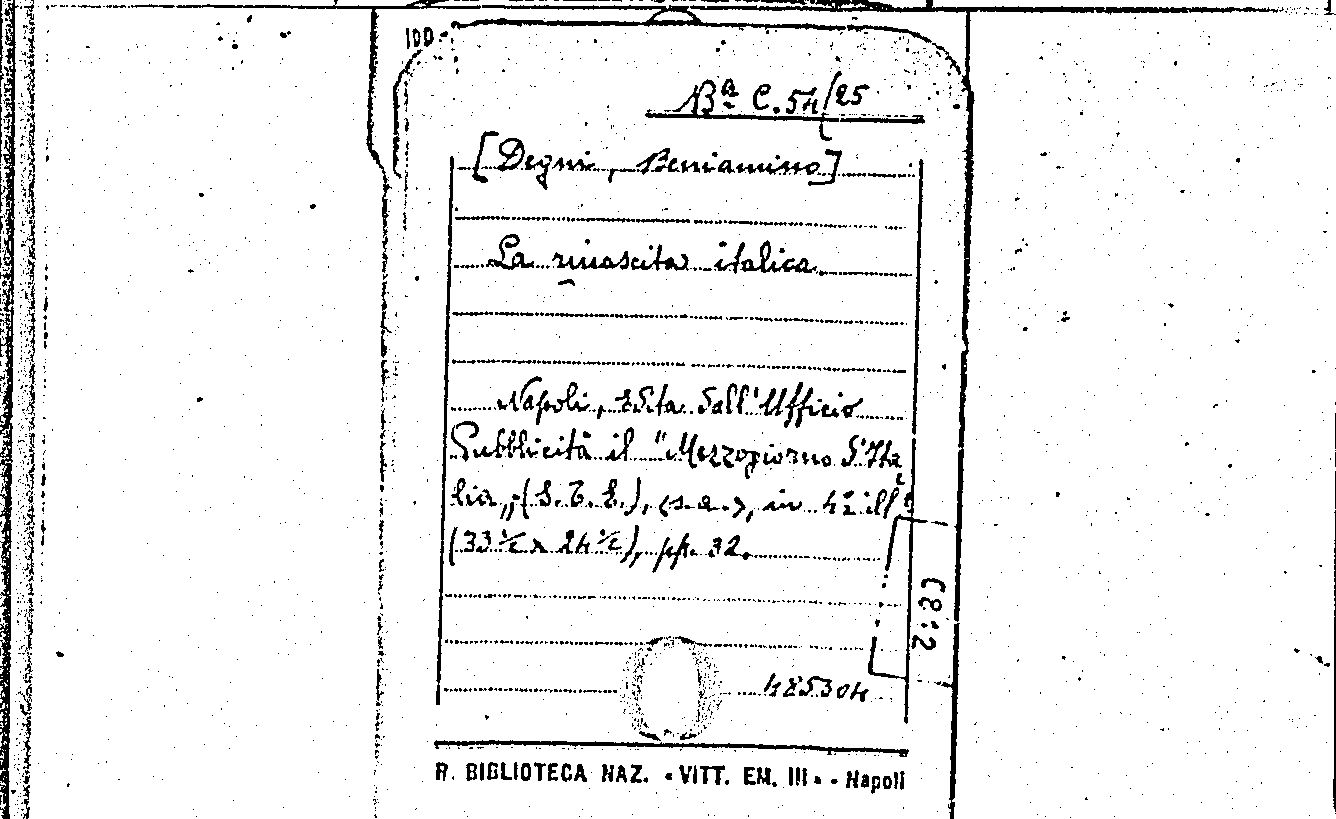 100
Bª C. 54/25
[Degni, Beniamino]
La rinascita italica
Napoli, edita dall'Ufficio
Pubblicità il "Mezzogiorno d'Ita
lia„, (S.T.E.), <s.a.>, in 4º ill.
(33½ x 24½), pp. 32.
485304
R. BIBLIOTECA NAZ. «VITT. EM. III» - Napoli